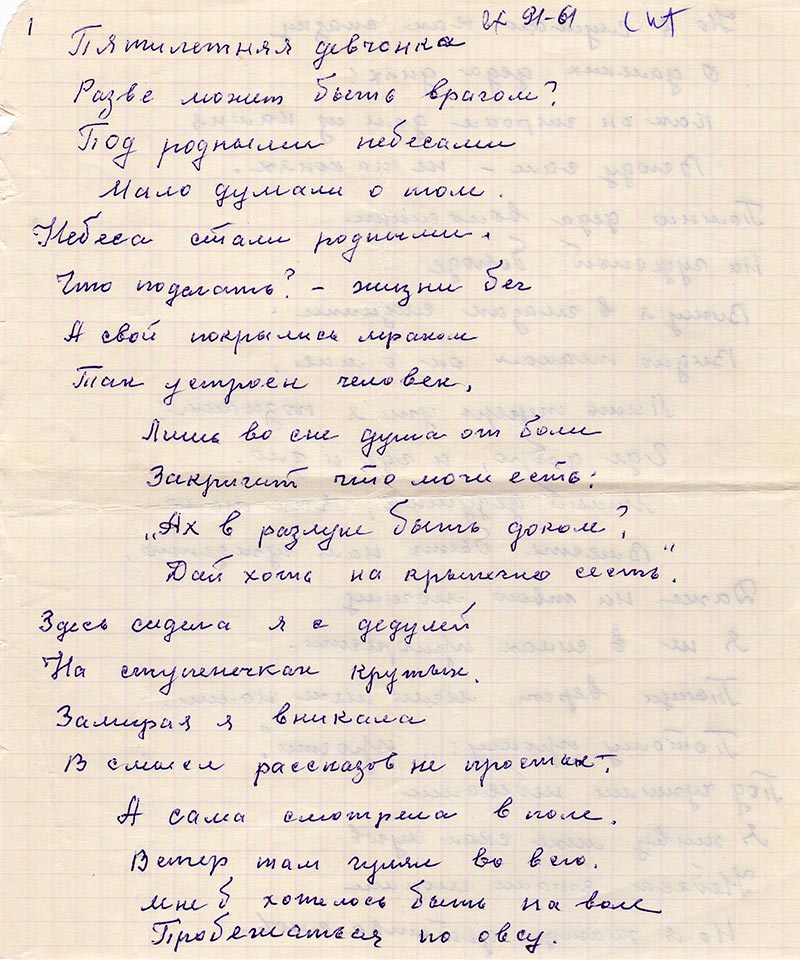 1
Пятилетняя девчонка
Разве может быть врагом?
Под родными небесами
Мало думали о том.
Небеса стали родными.
Что поделать? – жизни бег
А свой покрылись мраком
Так устроен человек,
Лишь во сне душа от боли
Закричит что мочи есть:
„Ах в разлуке быть доком?
Дай хоть на крылечко сесть".
Здесь сидела я с дедулей
На ступенечках крутых.
Замирая я вникала
В смысл рассказов не простых.
А сама смотрела в поле.
Ветер там гулял во всю.
Мне б хотелось быть на воле
Пробежаться по овсу.